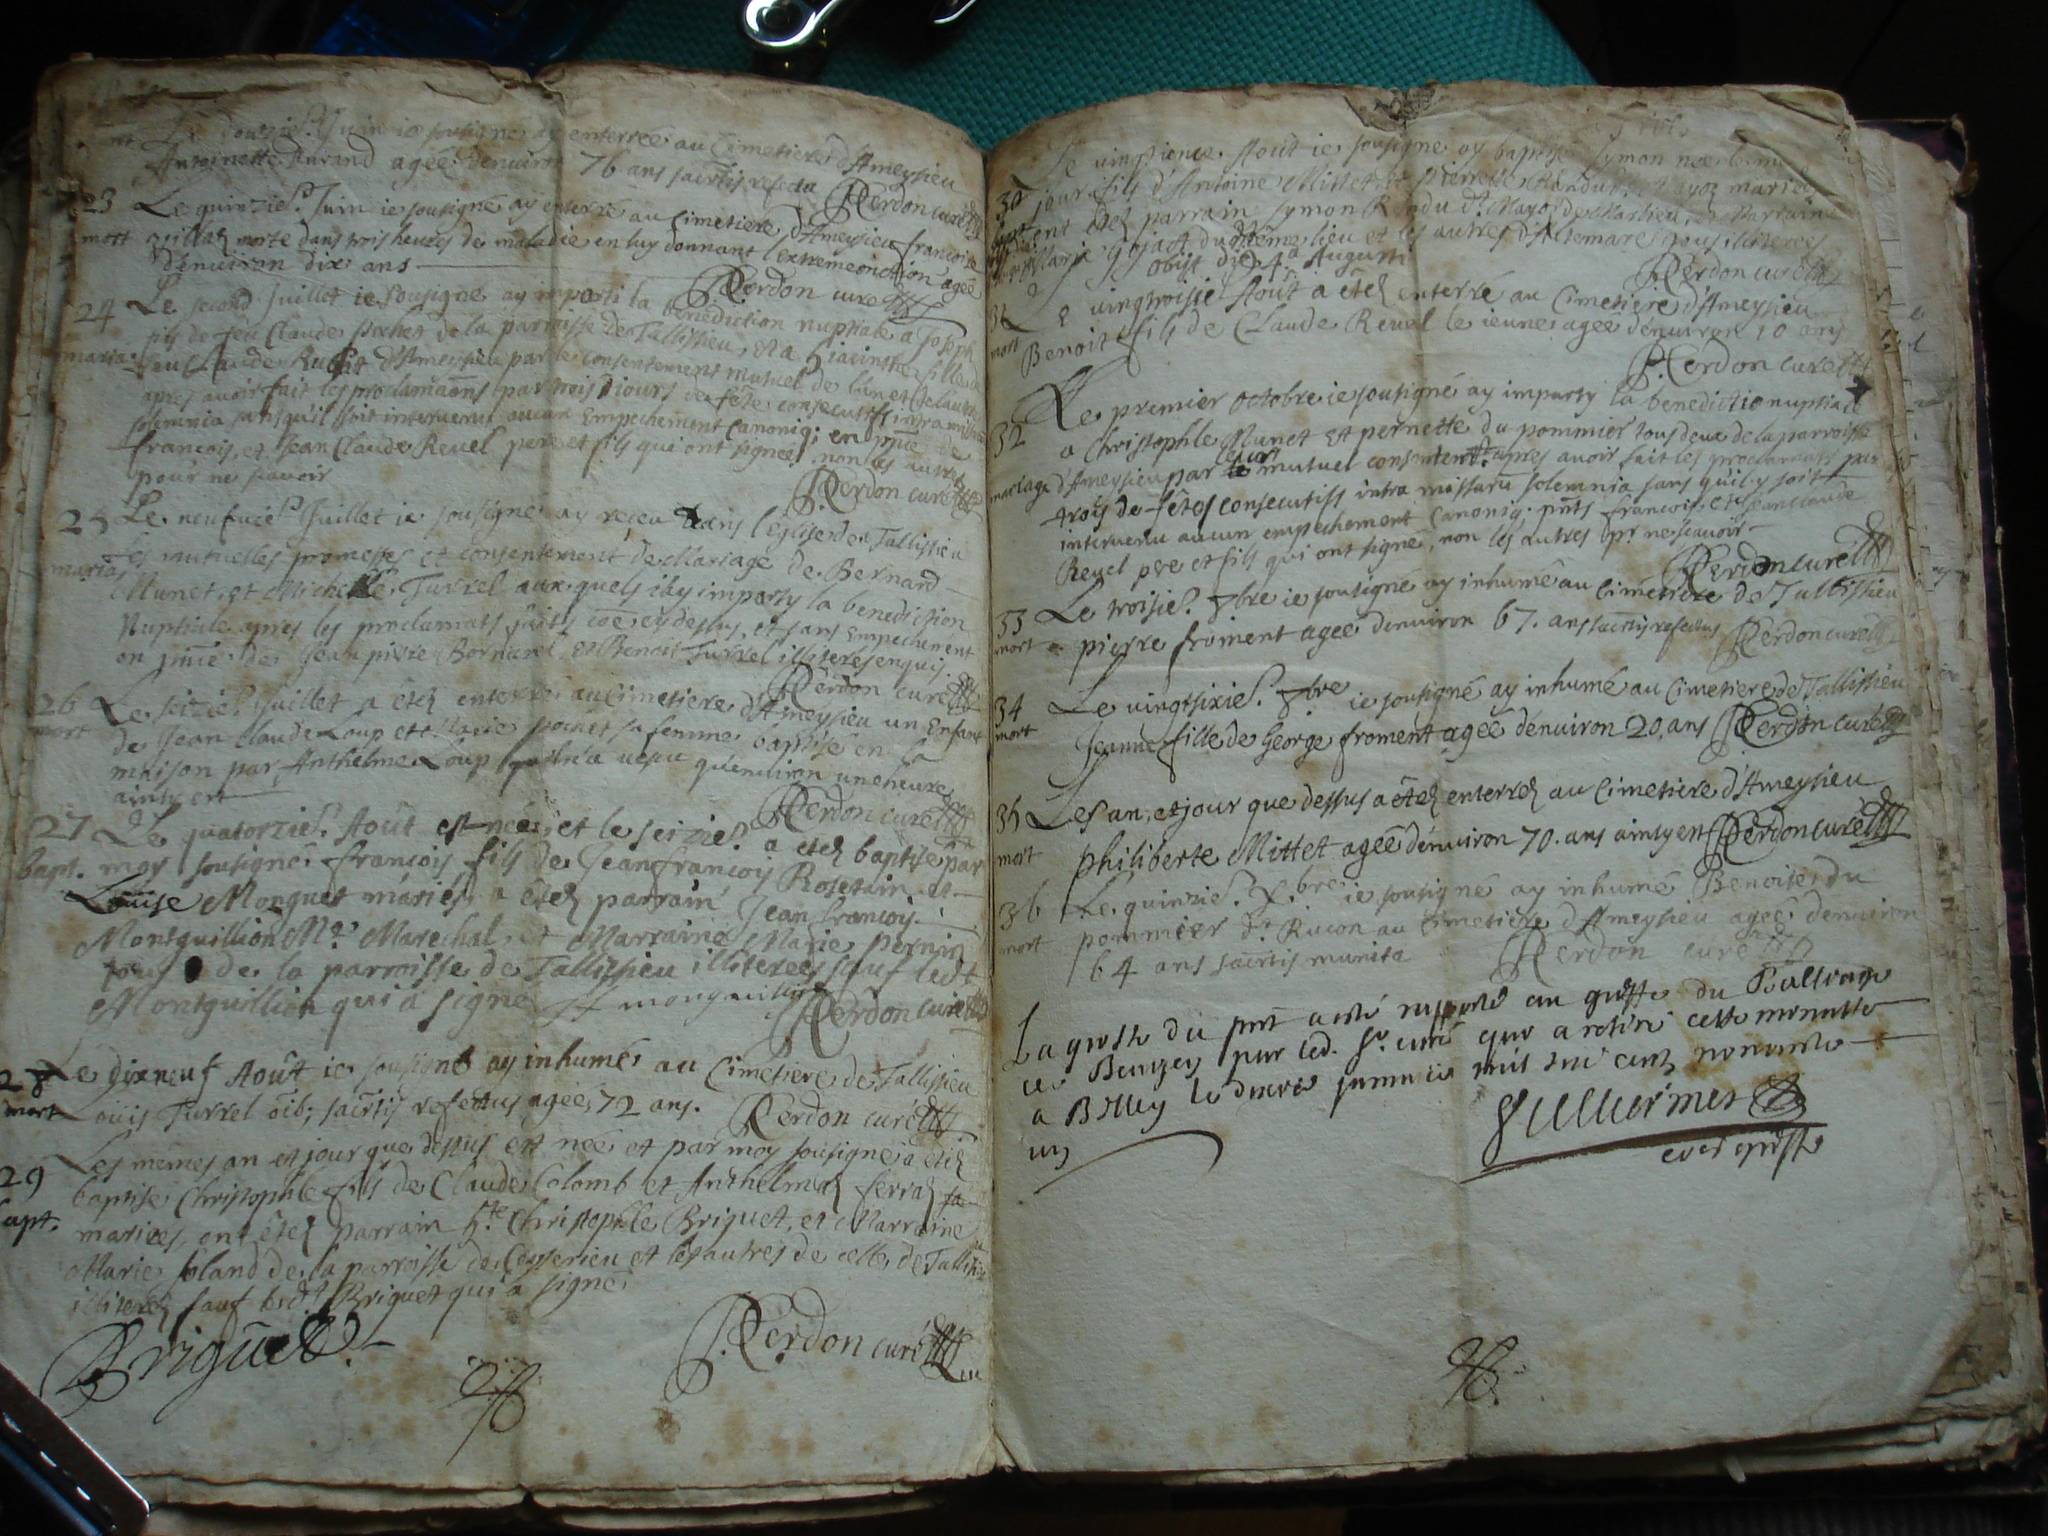 Le douzie. Juin ie sousigné ay enterrée au Cimetiere d'Ameysieu
Antoinette durand agée d'enuiron 76 ans sacrtis refecta
Perdon curé
23 Le quinzie. Juin ie sousigné ay enterré au Cimetiere d'Ameysieu francoise
mort morte dans trois heures de maladie en luy donnant l'extremeonction agée
d'enuiron dix ans
Perdon curé
24 Le second Juillet ie sousigné ay imparti la benediction nuptiale a Joseph
fils de feu Claude de la parroisse de Tallissieu, et a hiacinthe fille de
maria. feu Claude d'Ameysieu par le consentement mutuel de l'un et de l'autre
apres auoir fait les proclamaõns par trois iours de fête consecutifs intra missarū
solemnia sans qu'il soit interuenu aucun Empechement Canoniq; en pnce de
francois, et Jean Claude Reuel pere et fils qui ont signés non les autres
pour ne scauoir
Perdon curé
25 Le neufuie. Juillet ie sousigné ay reçeu dans l'Eglise de Tallissieu
les mutuelles promesses et consentement de Mariage de Bernard
maria. Munet, et Michelle Turrel aux quels i'ay imparty la benediction
Nuptiale apres les proclamats faits cõe cydessus, et sans Empechement
en pnce de Jean pierre Bornard et Benoit Turrel illiterés enquis.
Perdon curé
26 Le seizie. Juillet a eteź enterré au Cimetiere d'Ameysieu un Enfant
mort de Jean Claude Loup et Marie pochet sa femme baptisé en la
maison par Anthelme Loup qu'enuiron une heure
ainsy est
Perdon curé
27 Le quatorzie. Août est née, et le seizie. a eteź baptisé par
bapt. moy sousigné francois fils de Jean francois Rosetain et
Louise Monguet mariés a eteź parrain Jean francois
Montguillion Me. Marechal et Marraine Marie pernin
tous de la parroisse de Tallissieu illiterées sauf ledt
Montguillion qui a signé
JF monguillion Perdon curé
28 Le dixneuf Août ie sousigné ay inhumé au Cimetiere de Tallissieu
mort Louis Turrel oib; sacrtis refectus agée 72 ans. Perdon curé
29 Les mêmes an et jour que dessus est née et par moy sousigné a eteź
bapt. baptisé Christophle fils de Claude Colomb et Anthelmaź ferraź
mariées, ont eteź parrain hte Christophle Briguet, et Marraine
Marie de la parroisse de Ceyserieu et les autres de celle de Tallissieu
illiteréź sauf ledt Briguet qui a signé
Briguet
Perdon curé
Le
Le vingtieme Août ie sousigné ay baptisé Symon née le même
30 jour fils d'Antoine Mittet et pierrette Rendu mariés
ont eteź parrain Symon Rendu dt Mayoź et Marraine
Marie Gojat du même lieu et les autres d'Artemare tous illiterées
obijt die 24a Augusti
Perdon curé
31 Le vingtroisie. Août a eteź enterré au Cimetiere d'Ameysieu
mort Benoit fils de Claude Reuel le ieune agée d'enuiron 10 ans
P. Perdon curé
32 Le premier Octobre ie sousigné ay imparty la benedictio nuptiale
a Christophle Munet et pernette du pommier tous deux de la parroisse
mariage d'Ameysieu par leur mutuel consentemt. apres auoir fait les proclamats par
trois de fêtes consecutifs intra missarū solemnia sans quil y soit
interuenu aucun empechement Canoniq. pñts francois, et Jean claude
Reuel pere et fils qui ont signé, non les autres pr. ne scauoir
Perdon curé
33 Le troisie. 7bre ie sousigné ay inhumé au Cimetiere de Tallissieu
mort pierre froment agée d'enuiron 67. ans sacrtis refectus Perdon curé
34 Le vingtsixie. 7bre ie sousigné ay inhumé au Cimetiere de Tallissieu
mort Jeanne fille de George froment agée d'enuiron 20, ans Perdon curé
35 Les an, et jour que dessus a eteź enterreź au Cimetiere d'Ameysieu
mort philiberte Mittet agée d'enuiron 70. ans ainsy est Perdon curé
36 Le quinzie. X.bre ie sousigné ay inhumé Benoite du
mort pommier dt. Rucon au Cimetiere d'Ameysieu agée d'enuiron
64 ans sacrtis munita Perdon curé
La grosse du pnt a esté rapporté au greffe du Bailliage
de Beugey par led. Sr. curé qui a retiré cette minutte
a Belley le janvier mil six cent nonante
un
Guillermet